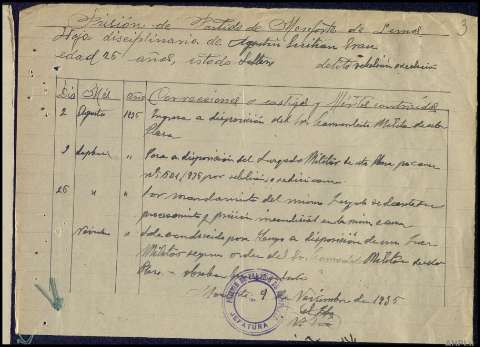 Prisión de Partido de Monforte de Lemos
3
Hoja disciplinaria de Agustín
edad 25 años, estado Soltero delito rebelión o sedición
Dia Mes año Correcciones o castigos y Méritos contraídos
2 Agosto 1935 Ingresa a disposición del Sr. Comandante Militar de esta
Plaza
3 " Pasa a disposición del Juzgado Militar de esta Plaza por causa
nº 501/935 por rebelión o sedición
25 " " Por mandamiento del mismo Juzgado se decreta su
procesamiento y prisión incondicional en la misma causa
" Sale conducido para Lugo a disposición de un Juez
Militar según orden del Sr. Comandante Militar de esta
Plaza
Monforte 9 de Noviembre de 1935
El Jefe
JEFATURA